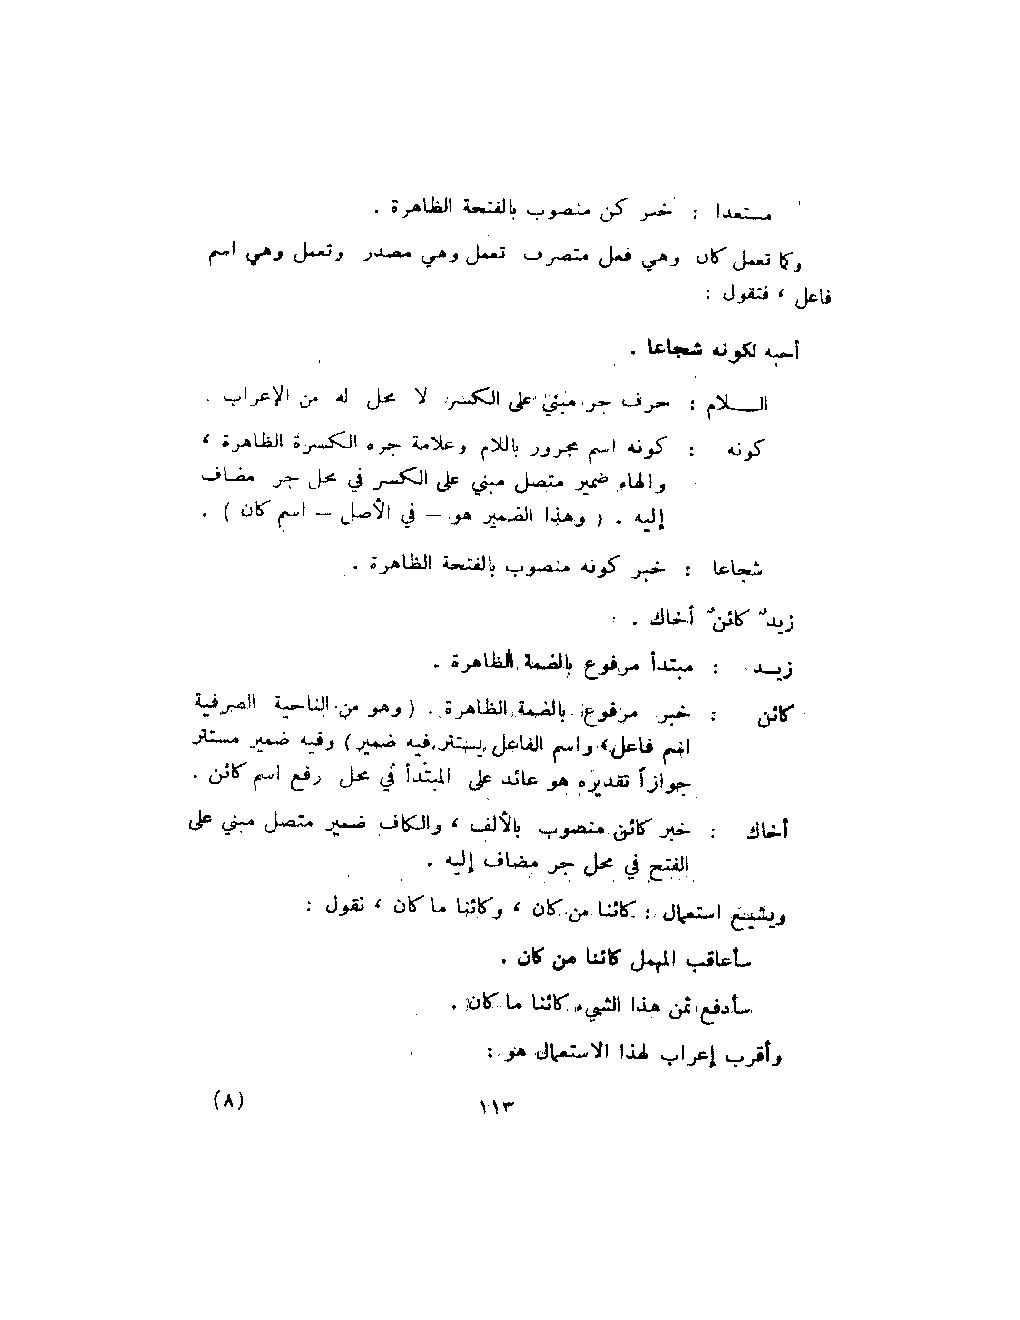 مستعدا : خبر كن منصوب بالفتحة الظاهرة .
وكما تعمل كان وهي فعل متصرف تعمل وهي مصدر وتعمل وهي اسم
فاعل ، فتقول :
أحبه لكونه شجاعا .
الــلام : حرف جر مبني على الكسر لا محل له من الإعراب .
كونه : كونه اسم مجرور باللام وعلامة جره الكسرة الظاهرة ،
والهاء ضمير متصل مبني على الكسر في محل جر مضاف
إليه . ( وهذا الضمير هو – في الأصل – اسم كان ) .
شجاعا : خبر كونه منصوب بالفتحة الظاهرة .
زيدٌ كائنٌ أخاك .
زيــد : مبتدأ مرفوع بالضمة الظاهرة .
كائن : خبر مرفوع بالضمة الظاهرة . ( وهو من الناحية الصرفية
اسم فاعل، واسم الفاعل يستتر فيه ضمير ) وفيه ضمير مستتر
جوازاً تقديره هو عائد على المبتدأ في محل رفع اسم كائن .
أخاك : خبر كائن منصوب بالألف ، والكاف ضمير متصل مبني على
الفتح في محل جر مضاف إليه .
ويشيع استعمال : كائنا من كان ، وكائنا ما كان ، نقول :
سأعاقب المهمل كائنا من كان .
سأدفع ثمن هذا الشيء كائنا ما كان .
وأقرب إعراب لهذا الاستعمال هو :
١١٣ (٨)